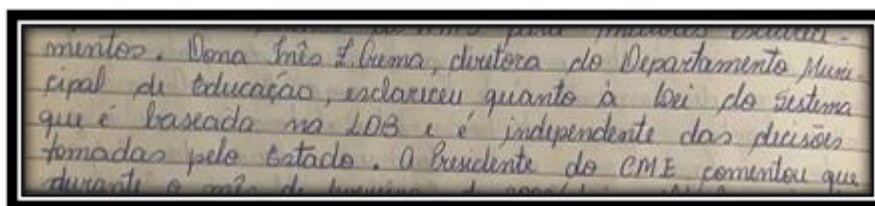 para melhores esclareci-
mentos. Dona Inês Z. Guma, diretora do Departamento Muni-
cipal de Educação, esclareceu quanto à Lei do Sistema
que é baseada na LDB e é independente das decisões
tomadas pelo Estado. O Presidente do CME comentou que
durante o mês de